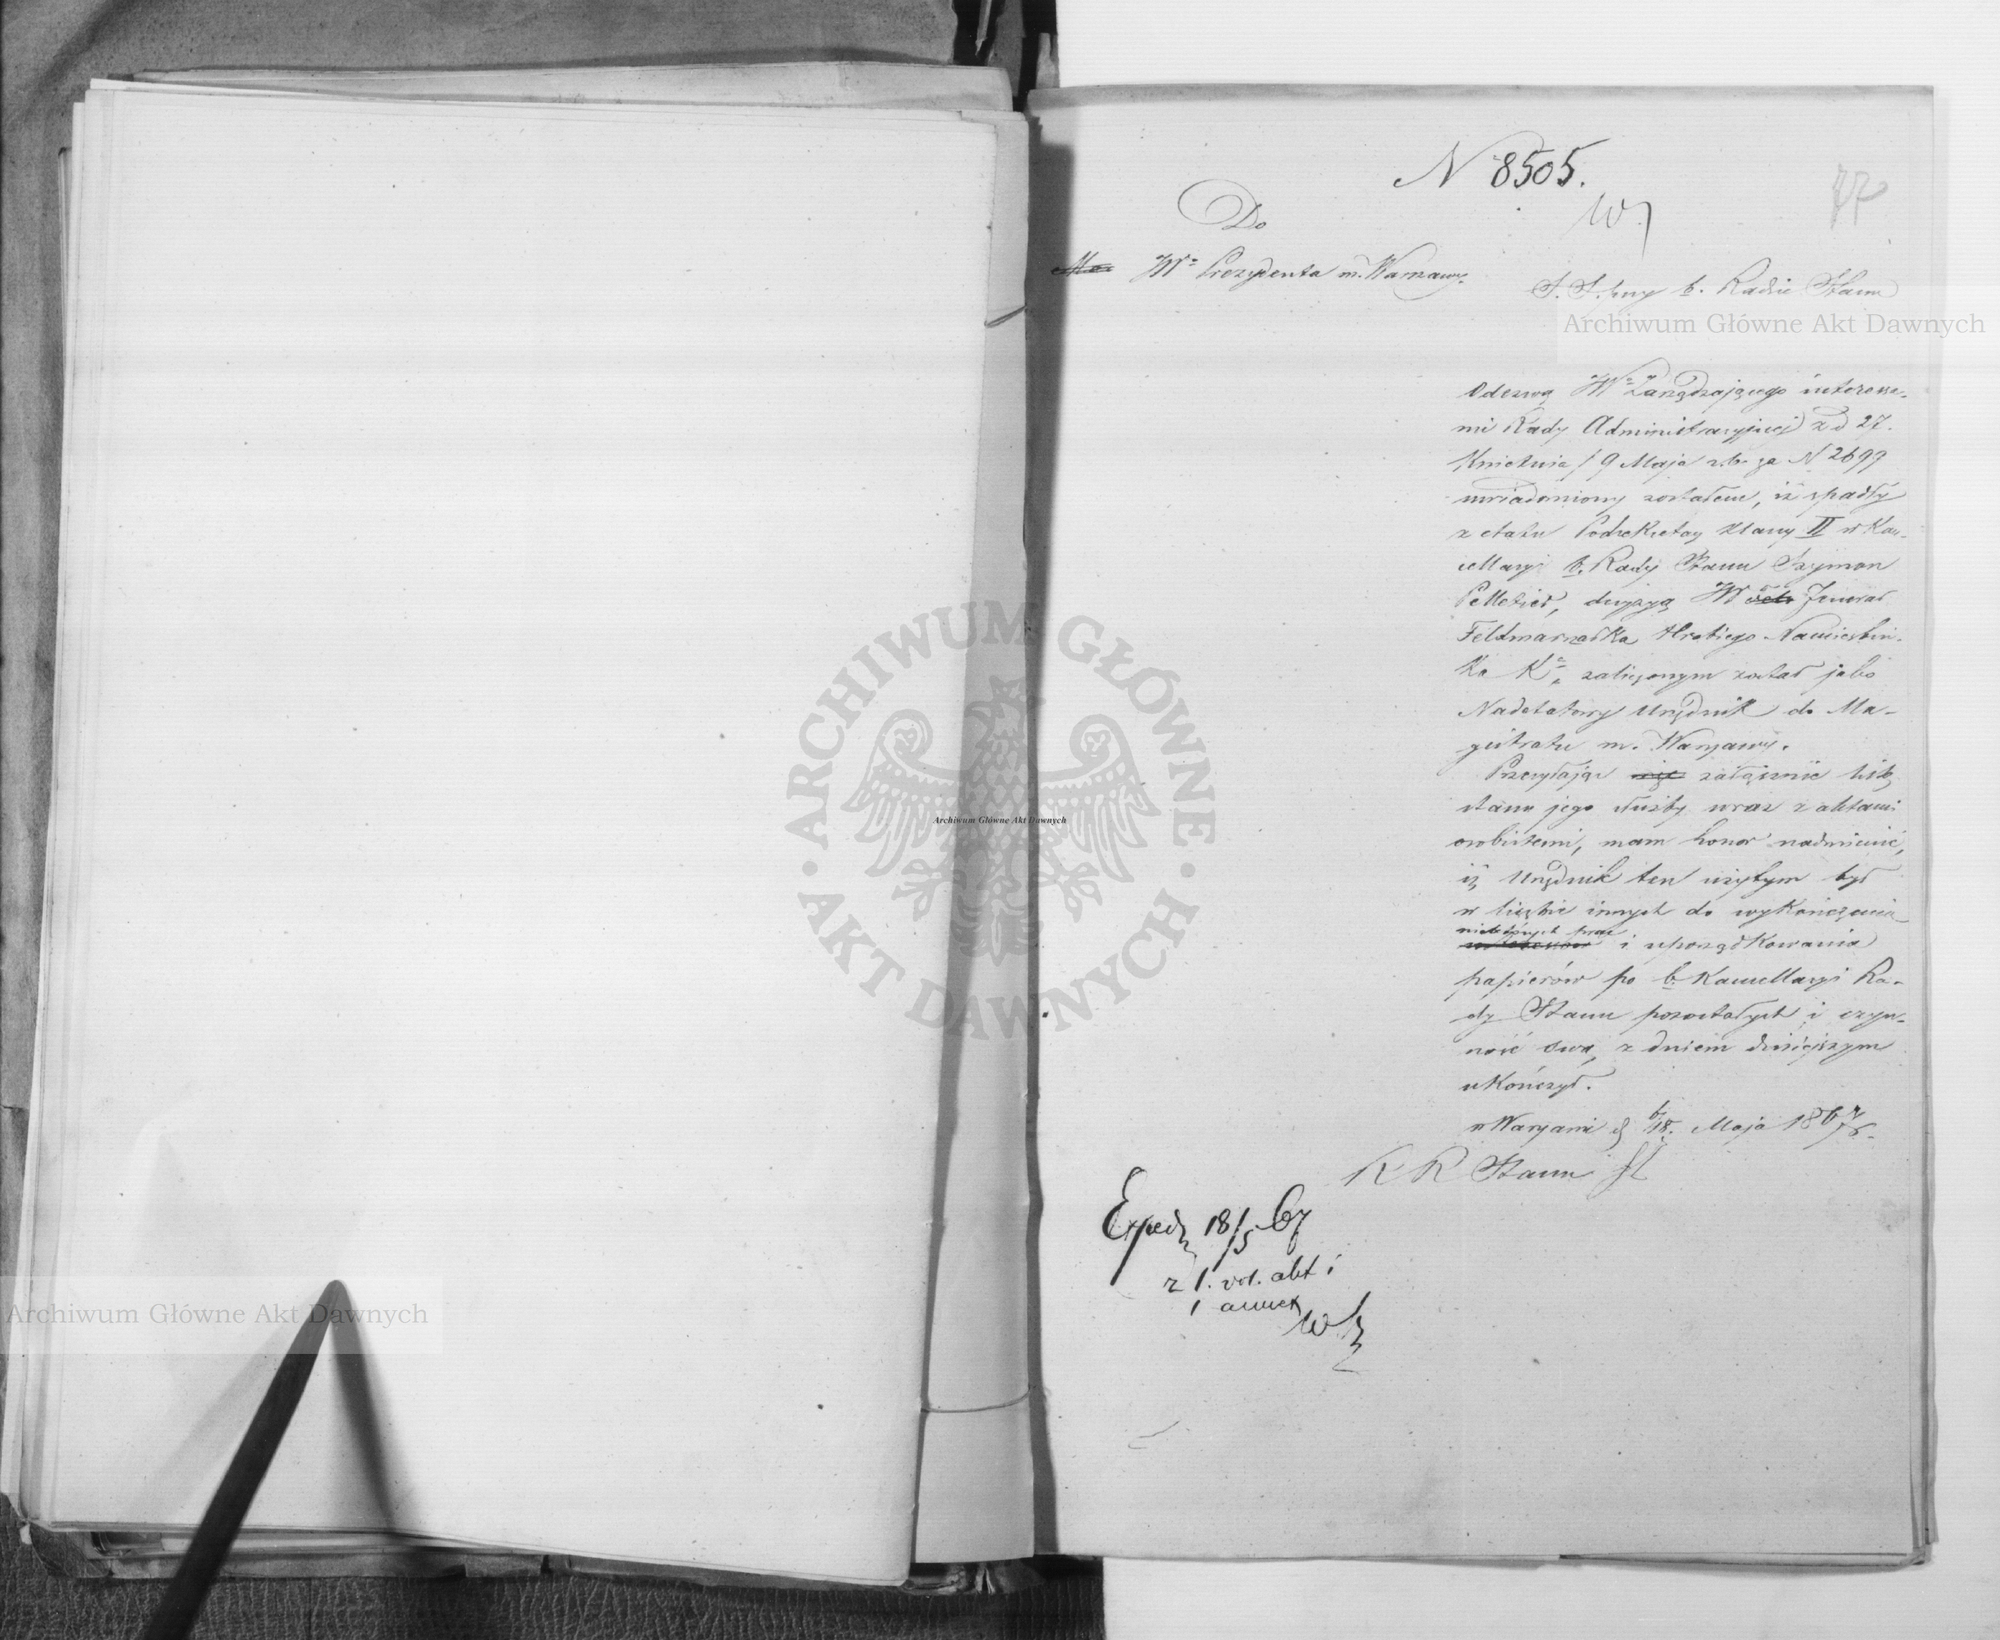 N 8505.
77
Do
JW Prezydenta m. Warszawy.
S. S. przy b. Radzie Stanu
Odezwą JW Zarządzającego interessa-
mi Rady Administracyjnej z d 27.
Kwietnia / 9 Maja r.b. za N 2699
uwiadomiony zostałem, iż spadły
z etatu Podsekretarz klassy II w Kan-
cellaryi b. Rady Stanu Szymon
Pelletier, decyzyą JW Jenerał
Feldmarszałka Hrabiego Namiestni-
ka K. zaliczonym został jako
Nadetatowy Urzędnik do Ma-
gistratu m. Warszawy.
Przesyłając załącznie listę
stanu jego służby wraz z aktami
osobistemi, mam honor nadmienić,
iż Urzędnik ten użytym był
w liczbie innych do wykończenia
niektórych prac
i uporządkowania
papierów po b. Kancellaryi Ra-
dy Stanu pozostałych i czyn-
ność swą, z dniem dzisiejszym
ukończył.
w Warszawie d 6/18. Maja 1867 r.
R R Stanu
Exped 18/5 67
z 1. vol. akt i
1 annex
Archiwum Główne Akt Dawnych
Archiwum Główne Akt Dawnych
Archiwum Główne Akt Dawnych
ARCHIWUM GŁÓWNE · AKT DAWNYCH ·